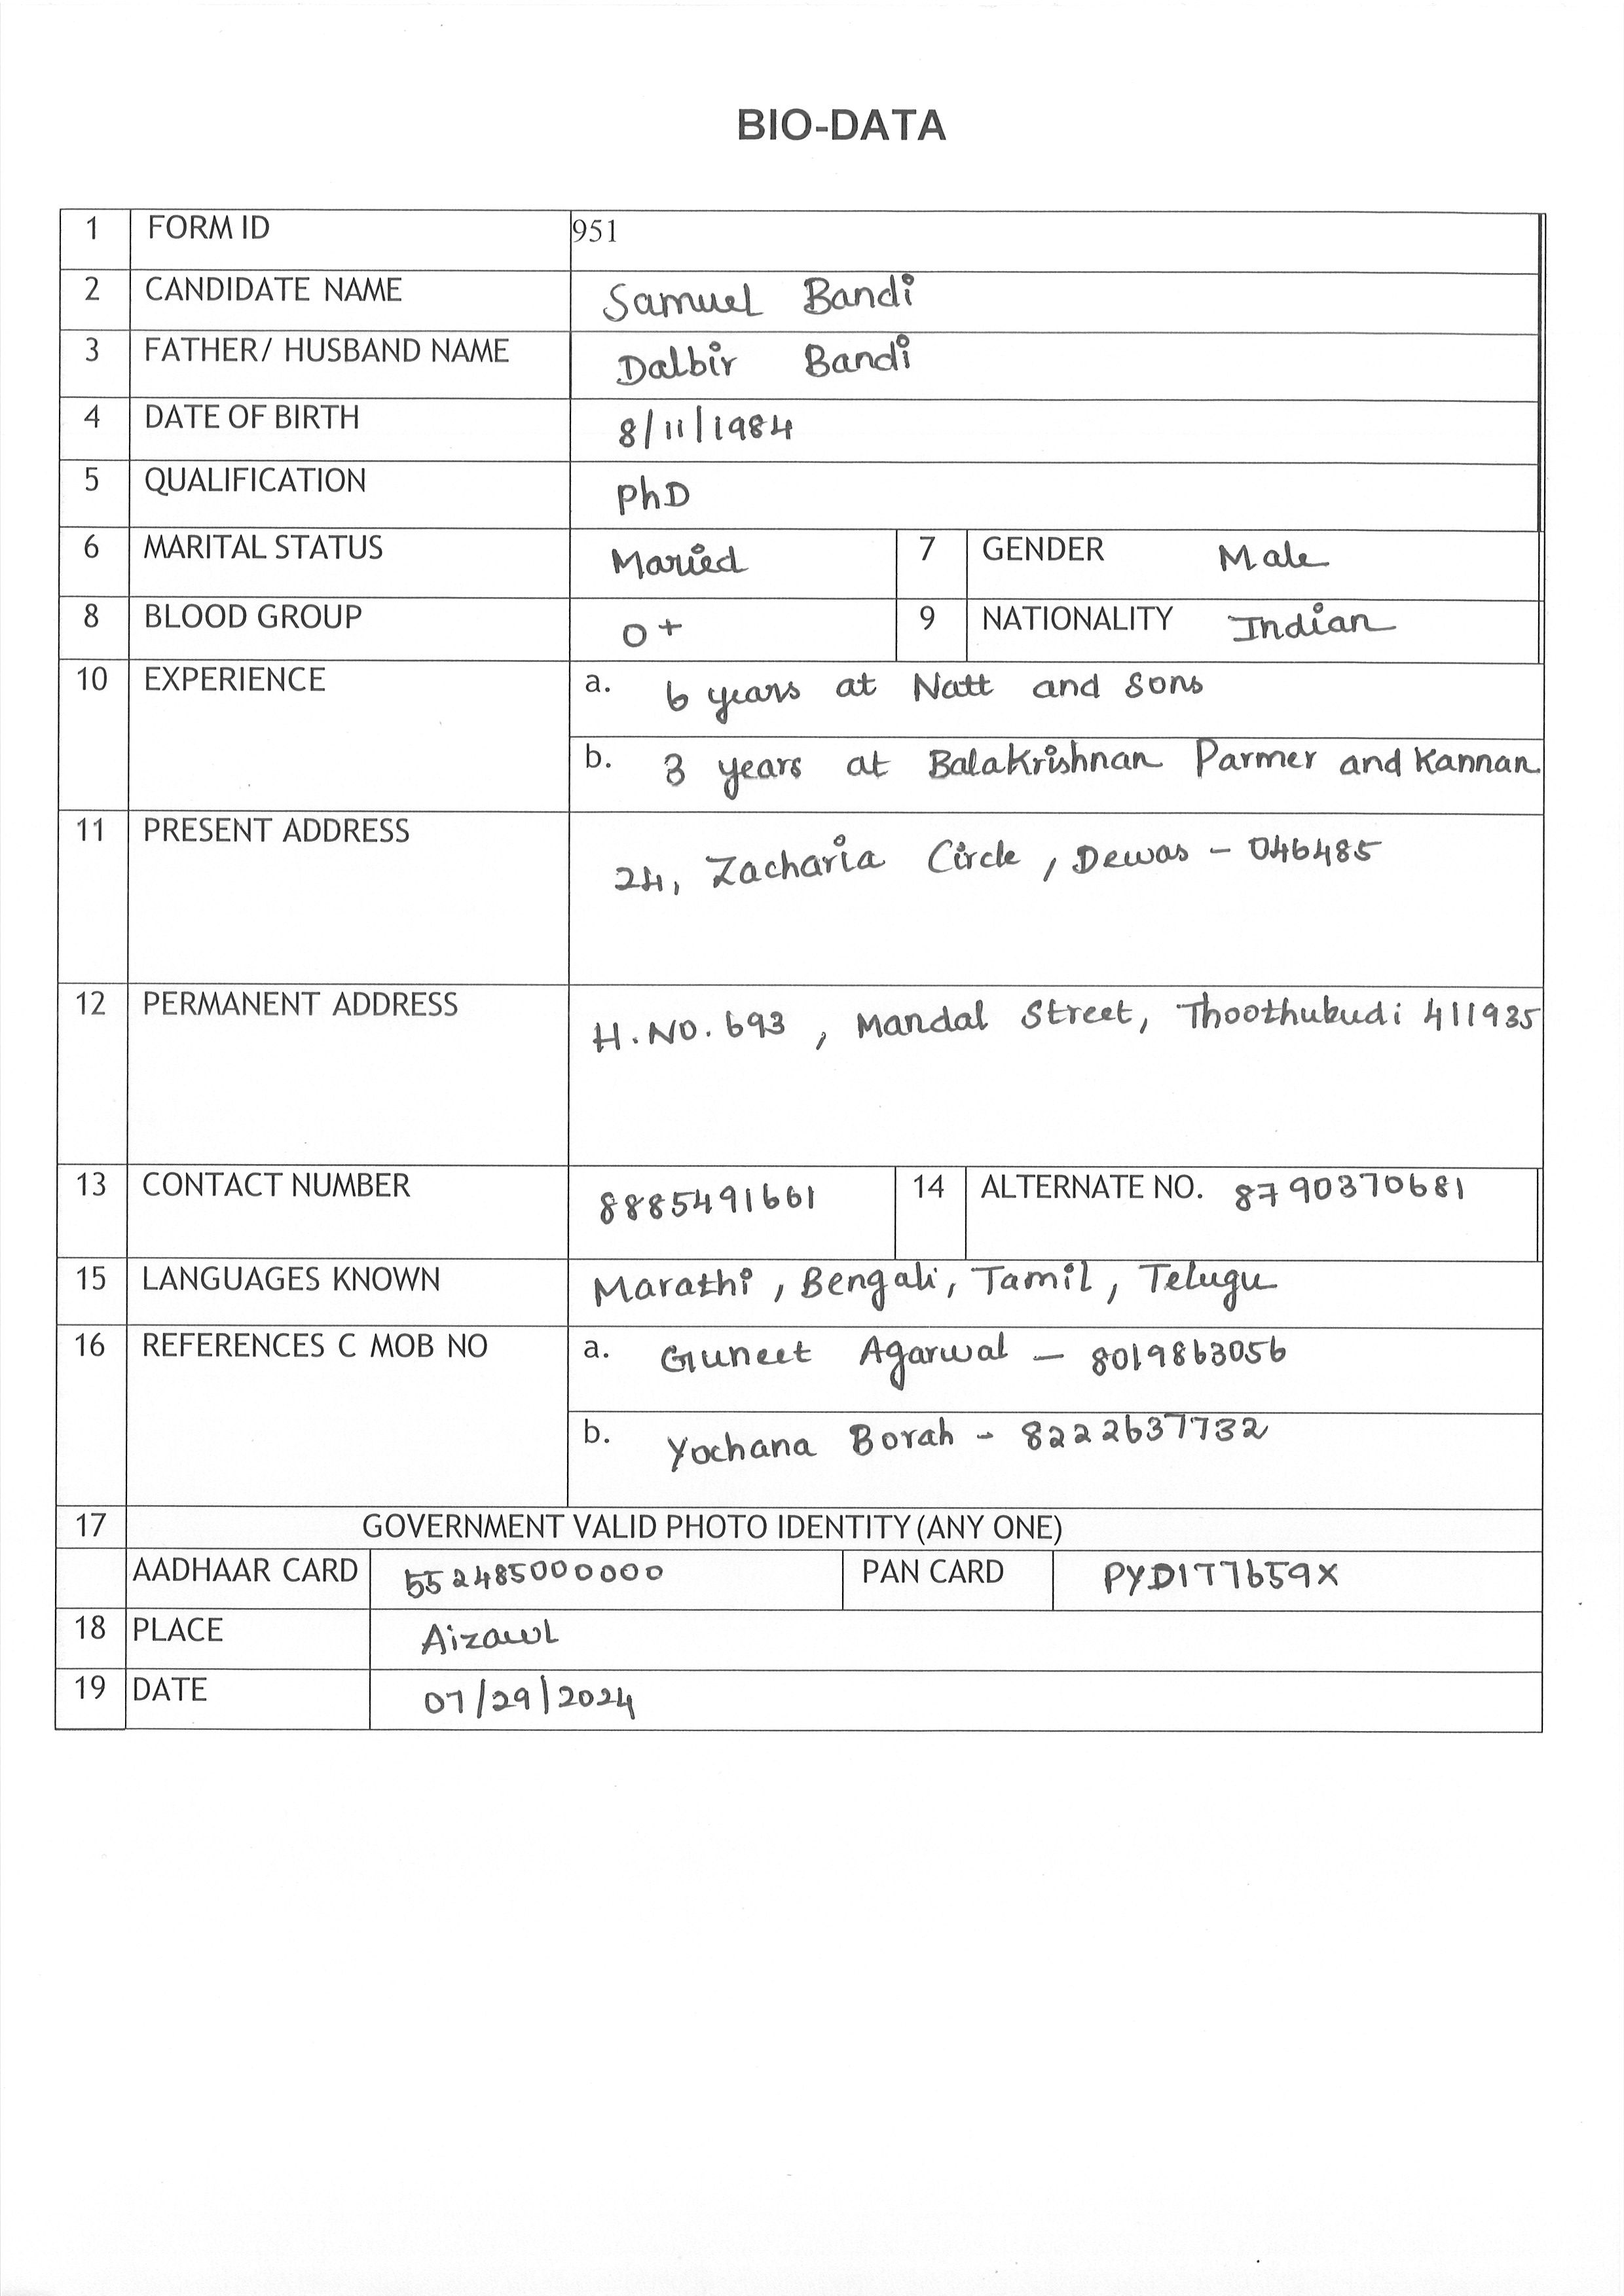 BIO-DATA
1 FORM ID 951
2 CANDIDATE NAME Samuel Bandi
3 FATHER/ HUSBAND NAME Dalbir Bandi
4 DATE OF BIRTH 8/11/1984
5 QUALIFICATION PhD
6 MARITAL STATUS Maried 7 GENDER Male
8 BLOOD GROUP O+ 9 NATIONALITY Indian
10 EXPERIENCE a. 6 years at Natt and Sons
b. 3 years at Balakrishnan Parmer and Kannan
11 PRESENT ADDRESS 24, Zacharia Circle, Dewas - 046485
12 PERMANENT ADDRESS H.NO.693, Mandal Street, Thoothukudi 411935
13 CONTACT NUMBER 8885491661 14 ALTERNATE NO. 8790370681
15 LANGUAGES KNOWN Marathi, Bengali, Tamil, Telugu
16 REFERENCES C MOB NO a. Guneet Agarwal - 8019863056
b. Yochana Borah - 8222637732
17 GOVERNMENT VALID PHOTO IDENTITY (ANY ONE)
AADHAAR CARD 552485000000 PAN CARD PYDIT7659X
18 PLACE Aizawl
19 DATE 07/29/2024